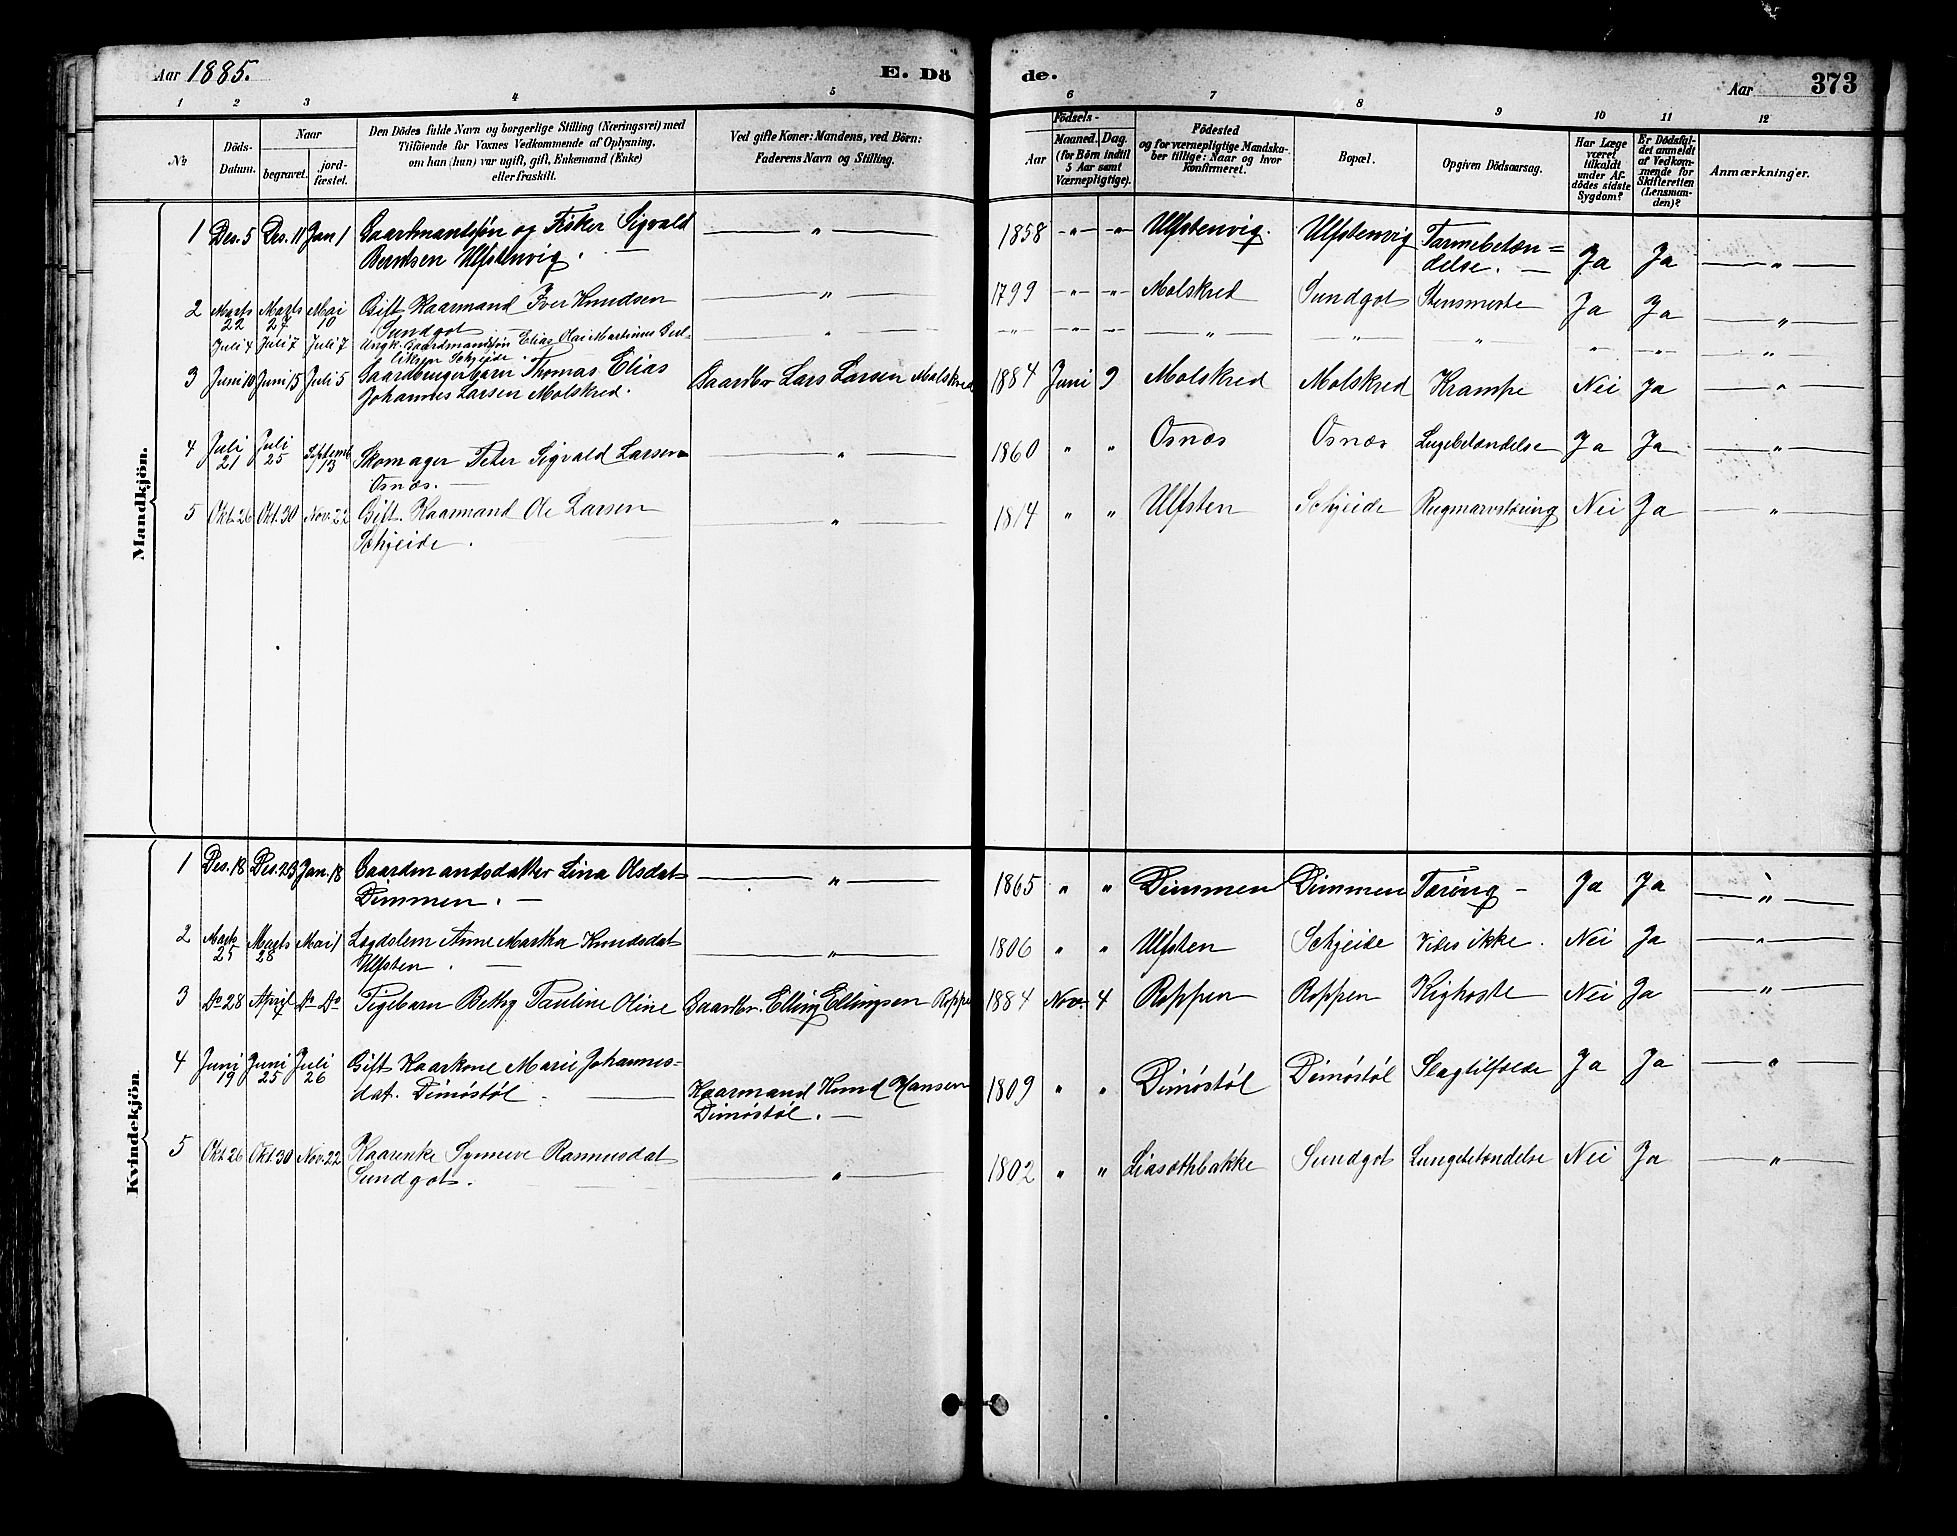 Aar 1885. E. Dö
de. Aar 373
1 2 3 4 5
6 7 8 9 10 11 12
№
Döds-
Datum.
Naar
begravet.
jord-
fæstet.
Den Dödes fulde Navn og borgerlige Stilling (Næringsvei) med
Tilföiende for Voxnes Vedkommende af Oplysning,
om han (hun) var ugift, gift, Enkemand (Enke)
eller fraskilt.
Ved gifte Koner: Mandens, ved Börn:
Faderens Navn og Stilling.
Födsels-
Aar
Maaned. Dag.
(for Börn indtil
5 Aar samt
Værnepligtige).
Födested
og for værnepligtige Mandska-
ber tillige: Naar og hvor
Konfirmeret.
Bopæl.
Opgiven Dödsaarsag.
Har Læge
været
tilkaldt
under Af-
dödes sidste
Sygdom?
Er Dödsfal-
det anmeldt
af Vedkom-
mende for
Skifteretten
(Lensman-
den)?
Anmærkninger.
Mandkjön.
1 Des. 5 Des. 11 Jan 1 Gaardmandsøn og Fisker Sigvald
Berntsen Ulfstenvig. — " — 1858 " " Ulfstenvig. Ulfstenvig Tarmebetæn=
delse. — Ja Ja — " —
2 Marts 22 Marts 27 Mai 10 Gift Kaarmand Iver Knudsen
Sundgot — " — 1799 " " Molskred Sundgot Stensmerte Ja Ja — " —
Juli 4 Juli 7 Juli 7 Ungk. Gaardmandsøn Elias Olai Martinus
Schjeide. — " —
3 Juni 10 Juni 15 Juli 5 Gaardbrugerbarn Thomas Elias
Johannes Larsen Molskred. Gaardbr Lars Larsen Molskred 1884 Juni 9 Molskred Molskred Krampe Nei Ja — " —
4 Juli 21 Juli 25 Septemb 13 Skomager Peter Sigvald Larsen
Osnæs. — " — 1860 " " Osnæs Osnæs Lugebetændelse Ja Ja — " —
5 Okt. 26 Okt. 30 Nov. 22 Gift. Kaarmand Ole Larsen
Schjeide. — " — 1814 " " Ulfsten Schjeide Rugmarvstæring Nei Ja — " —
Kvindekjön.
1 Des. 18 Des. 23 Jan. 18 Gaardmandsdatter Lina Olsdat
Dimmen. — " — 1865 " " Dimmen Dimmen Tæring — Ja Ja — " —
2 Marts 25 Marts 28 Mai 1 Lægdslem Anne Martha Knudsdat
Ulfsten. — " — 1806 " " Ulfsten Schjeide Vides ikke. Nei Ja — " —
3 Do 28 April 4 Do Do Pigebarn Bethy Pauline Oline Gaardbr. Elling Ellingsen Roppe 1884 Nov. 4 Roppen Roppen Kighoste Nei Ja — " —
4 Juni 19 Juni 25 Juli 26 Gift Kaarkone Marie Johannes=
dat. Dimøstøl Kaarmand Knud Hansen
Dimøstøl. — 1809 " " Dimøstøl Dimøstøl Slagtilfælde Ja Ja — " —
5 Okt. 26 Okt. 30 Nov. 22 Kaarenke Synneve Rasmusdat
Sundgot. — " — 1802 " " Liasethbakke Sundgot Lungebetændelse Nei Ja — " —